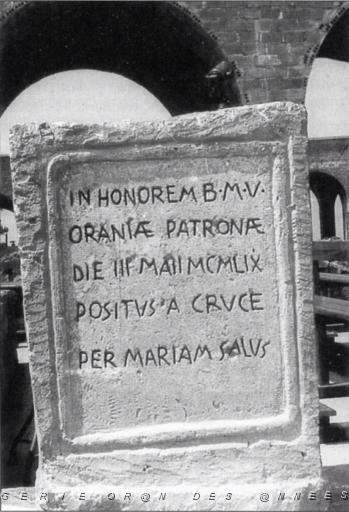 IN HONOREM B·M·V·
ORANIÆ PATRONÆ
DIE III MAII MCMLIX
POSITVS A CRVCE
PER MARIAM SALUS
GERIE OR@N DES @NNEES